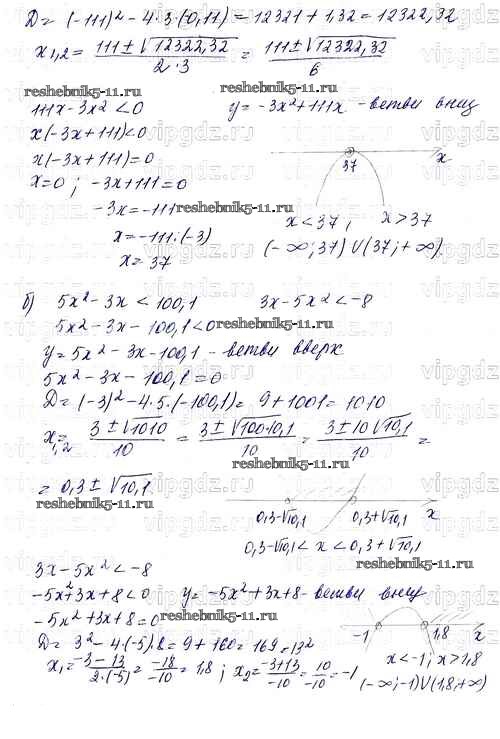 D = (-111)² - 4·3·(0,11) = 12321 + 1,32 = 12322,32
x₁,₂ = (111 ± √12322,32)/(2·3) = (111 ± √12322,32)/6
reshebnik5-11.ru reshebnik5-11.ru
111x - 3x² < 0 y = -3x² + 111x - ветви вниз
x(-3x + 111) < 0
x(-3x + 111) = 0
37 x
x = 0 ; -3x + 111 = 0
-3x = -111 reshebnik5-11.ru
x < 37 , x > 37
x = -111 : (-3) (-∞; 37) U (37; +∞)
x = 37
б) 5x² - 3x < 100,1 3x - 5x² < -8
5x² - 3x - 100,1 < 0 reshebnik5-11.ru
y = 5x² - 3x - 100,1 - ветви вверх
5x² - 3x - 100,1 = 0
D = (-3)² - 4·5·(-100,1) = 9 + 1001 = 1010
x₁,₂ = (3 ± √1010)/10 = (3 ± √100·10,1)/10 = (3 ± 10√10,1)/10 =
reshebnik5-11.ru
= 0,3 ± √10,1
0,3-√10,1 0,3+√10,1 x
0,3-√10,1 < x < 0,3+√10,1
reshebnik5-11.ru
3x - 5x² < -8
-5x² + 3x + 8 < 0 y = -5x² + 3x + 8 - ветви вниз
-5x² + 3x + 8 = 0
-1 1,8 x
D = 3² - 4·(-5)·8 = 9 + 160 = 169 = 13²
x₁ = (-3 - 13)/(2·(-5)) = -18/-10 = 1,8 ; x₂ = (-3 + 13)/-10 = 10/-10 = -1
x < -1 ; x > 1,8
(-∞; -1) U (1,8; +∞)
reshebnik5-11.ru